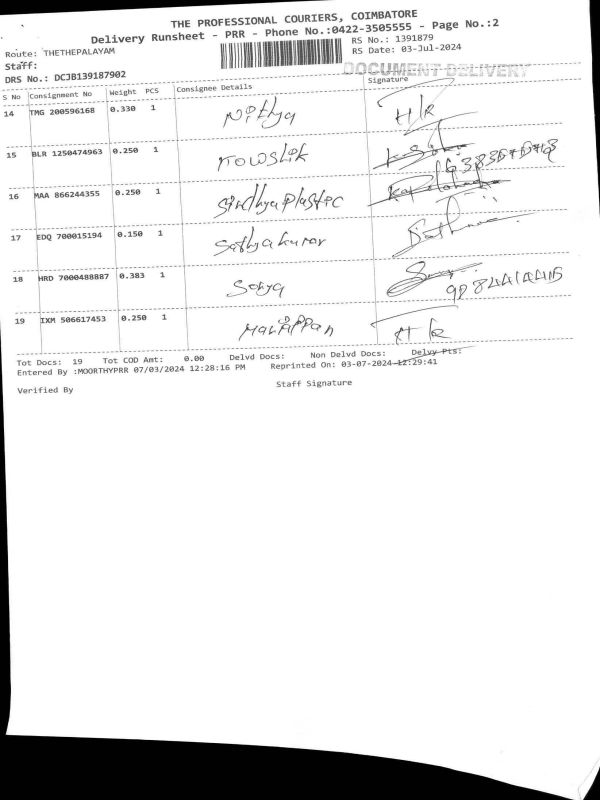 THE PROFESSIONAL COURIERS, COIMBATORE
Delivery Runsheet - PRR - Phone No.:0422-3505555 - Page No.:2
Route: THETHEPALAYAM RS No.: 1391879
Staff: RS Date: 03-Jul-2024
DRS No.: DCJB139187902 DOCUMENT DELIVERY
S No Consignment No Weight PCS Consignee Details Signature
14 TMG 200596168 0.330 1 Nithya H/R
15 BLR 1250474963 0.250 1 Kowshik
16 MAA 866244355 0.250 1 Sindhya Plastic
17 EDQ 700015194 0.150 1 Sathyakumar
18 HRD 7000488887 0.383 1 Sonya
19 IXM 506617453 0.250 1 Mariappan H R
Tot Docs: 19 Tot COD Amt: 0.00 Delvd Docs: Non Delvd Docs: Delvy Pts:
Entered By :MOORTHYPRR 07/03/2024 12:28:16 PM Reprinted On: 03-07-2024 12:29:41
Verified By Staff Signature